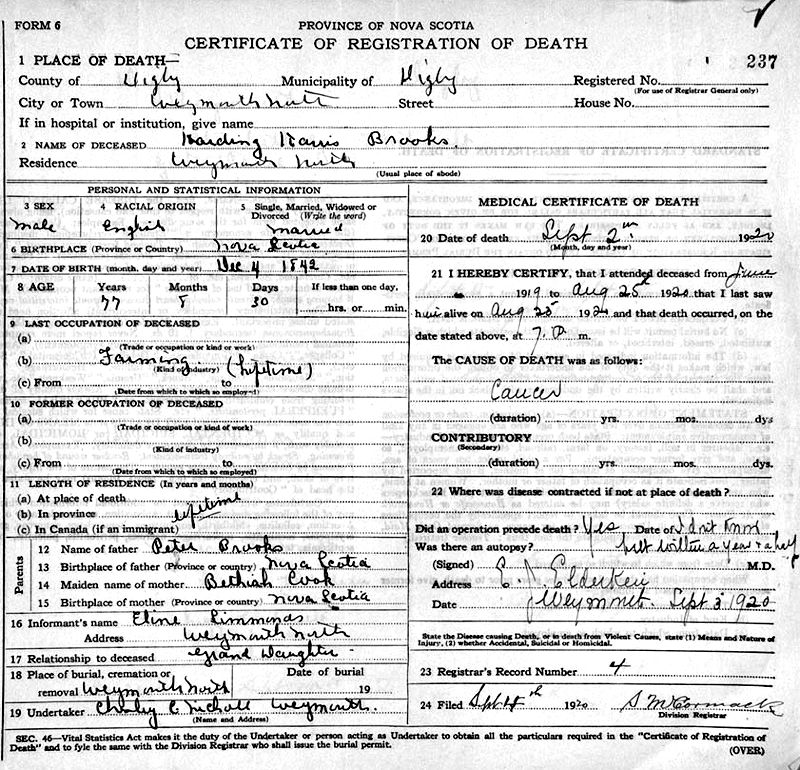 FORM 6
PROVINCE OF NOVA SCOTIA
CERTIFICATE OF REGISTRATION OF DEATH
237
1 PLACE OF DEATH—
County of Digby Municipality of Digby Registered No.
(For use of Registrar General only)
City or Town Weymouth North Street House No.
If in hospital or institution, give name
2 NAME OF DECEASED Harding Harris Brooks.
Residence Weymouth North
(Usual place of abode)
PERSONAL AND STATISTICAL INFORMATION
3 SEX 4 RACIAL ORIGIN 5 Single, Married, Widowed or Divorced (Write the word)
Male English Married
6 BIRTHPLACE (Province or Country) Nova Scotia
7 DATE OF BIRTH (month, day and year) Dec 4 1842
8 AGE Years Months Days If less than one day.
77 8 30 hrs. or min.
9 LAST OCCUPATION OF DECEASED
(a)
(Trade or occupation or kind of work)
(b) Farming (lifetime)
(Kind of industry)
(c) From to
(Date from which to which so employed)
10 FORMER OCCUPATION OF DECEASED
(a)
(Trade or occupation or kind of work)
(b)
(Kind of industry)
(c) From to
(Date from which to which so employed)
11 LENGTH OF RESIDENCE (In years and months)
(a) At place of death
(b) In province lifetime
(c) In Canada (if an immigrant)
Parents
12 Name of father Peter Brooks
13 Birthplace of father (Province or country) Nova Scotia
14 Maiden name of mother Bethiah Cook
15 Birthplace of mother (Province or country) Nova Scotia
16 Informant's name Eline Simmonds
Address Weymouth North
17 Relationship to deceased Grand Daughter
18 Place of burial, cremation or Date of burial
removal Weymouth North 19
19 Undertaker C Nicholl Weymouth.
(Name and Address)
MEDICAL CERTIFICATE OF DEATH
20 Date of death Sept 2nd 1920
(Month, day and year)
21 I HEREBY CERTIFY, that I attended deceased from June
1919 to Aug 25th 1920 that I last saw
him alive on Aug 25 1920 and that death occurred, on the
date stated above, at 7. m.
The CAUSE OF DEATH was as follows:
Cancer
(duration) yrs. mos. dys
CONTRIBUTORY
(Secondary)
(duration) yrs. mos. dys.
22 Where was disease contracted if not at place of death?
Did an operation precede death? Yes Date of I don't know
Was there an autopsy? but within a year & a half
(Signed) E. J. Elderkin M.D.
Address Weymouth.
Date Sept 3 1920
State the Disease causing Death, or in death from Violent Causes, state (1) Means and Nature of
Injury, (2) whether Accidental, Suicidal or Homicidal.
23 Registrar's Record Number 4
24 Filed Sept 1920 S McCormack
Division Registrar
SEC. 46—Vital Statistics Act makes it the duty of the Undertaker or person acting as Undertaker to obtain all the particulars required in the "Certificate of Registration of
Death" and to fyle the same with the Division Registrar who shall issue the burial permit.
(OVER)